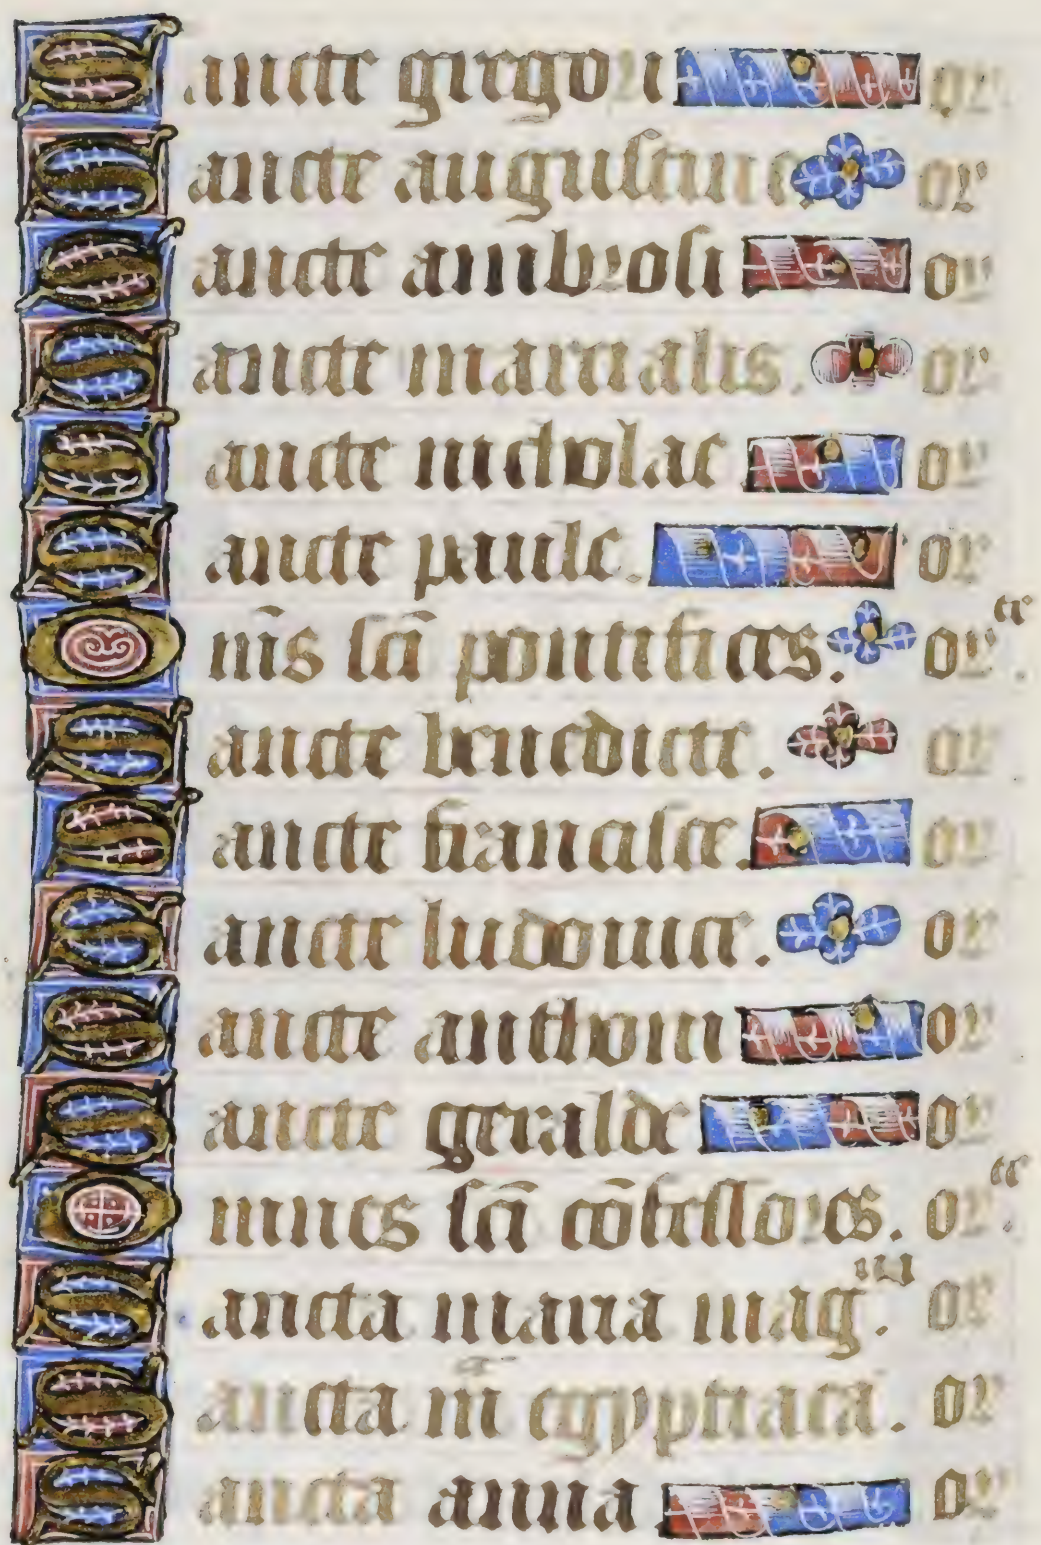 Sancte gregori or
Sancte augustine. or
Sancte ambrosi or
Sancte marcialis. or
Sancte nicholae or
Sancte paule. or
Om̄s sc̄i pontifices. orte.
Sancte benedicte. or
Sancte francisce. or
Sancte ludouice. or
Sancte anthoni or
Sancte geralde or
Omnes sc̄i cōfessores. orte.
Sancta maria mag. or
Sancta m̄ egyptiaca. or
Sancta anna or